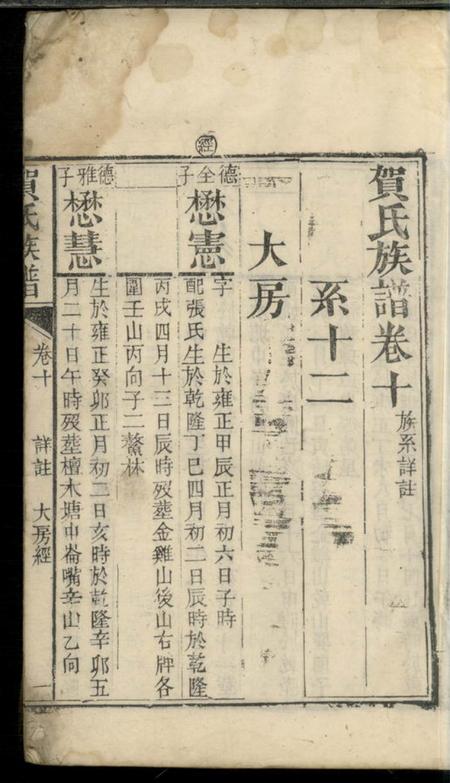 經
賀氏族譜卷十
族系詳註
系十二
大房
德全子
懋憲
字　生於雍正甲辰正月初六日子時
配張氏生於乾隆丁巳四月初二日辰時於乾隆
丙戌四月十三日辰時歿塟金雞山後山右牌各
圍壬山丙向子二鰲林
德雅子
懋慧
生於雍正癸卯正月初二日亥時於乾隆辛卯五
月二十日午時歿塟檀木塘中崙嘴辛山乙向
賀氏族譜
卷十
詳註
大房經
一